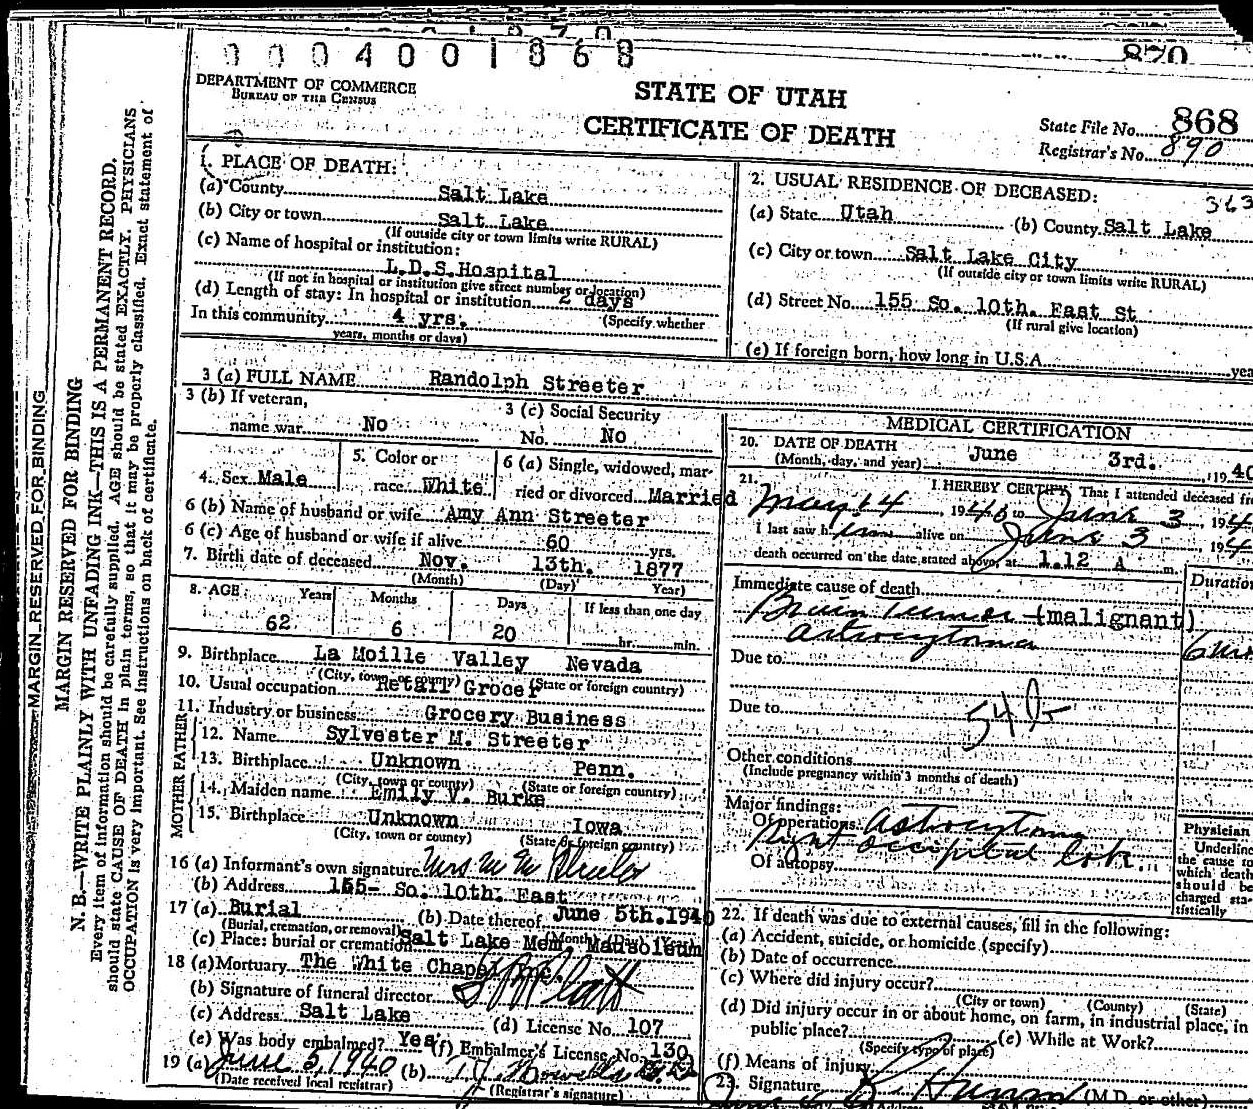 0004001868
870
DEPARTMENT OF COMMERCE
BUREAU OF THE CENSUS
STATE OF UTAH
CERTIFICATE OF DEATH
State File No. 868
Registrar's No. 890
1. PLACE OF DEATH:
(a) County Salt Lake
(b) City or town Salt Lake
(If outside city or town limits write RURAL)
(c) Name of hospital or institution:
L.D.S. Hospital
(If not in hospital or institution give street number or location)
(d) Length of stay: In hospital or institution 2 days
In this community 4 yrs. (Specify whether
years, months or days)
2. USUAL RESIDENCE OF DECEASED:
363
(a) State Utah (b) County Salt Lake
(c) City or town Salt Lake City
(If outside city or town limits write RURAL)
(d) Street No. 155 So. 10th. East St
(If rural give location)
(e) If foreign born, how long in U.S.A. yea
3 (a) FULL NAME Randolph Streeter
3 (b) If veteran,
name war No
3 (c) Social Security
No. No
4. Sex Male
5. Color or
race White
6 (a) Single, widowed, mar-
ried or divorced Married
6 (b) Name of husband or wife Amy Ann Streeter
6 (c) Age of husband or wife if alive 60 yrs.
7. Birth date of deceased Nov. 13th. 1877
(Month) (Day) Year)
8. AGE Years Months Days If less than one day
62 6 20 hr. min.
9. Birthplace La Moille Valley Nevada
(City, town or county) (State or foreign country)
10. Usual occupation Retail Grocer
11. Industry or business Grocery Business
FATHER
12. Name Sylvester M. Streeter
13. Birthplace Unknown Penn.
(City, town or county) (State or foreign country)
MOTHER
14. Maiden name Emily V. Burke
15. Birthplace Unknown Iowa
(City, town or county) (State or foreign country)
16 (a) Informant's own signature Mrs
(b) Address 155- So. 10th. East
17 (a) Burial (b) Date thereof June 5th. 1940
(Burial, cremation, or removal) (Month) (Day) (Year)
(c) Place: burial or cremation Salt Lake Mem. Mausoleum
18 (a) Mortuary The White Chapel Inc.
(b) Signature of funeral director
(c) Address Salt Lake (d) License No. 107
(e) Was body embalmed? Yes (f) Embalmer's License No. 130
19 (a) June 5, 1940 (b)
(Date received local registrar) (Registrar's signature)
MEDICAL CERTIFICATION
20. DATE OF DEATH
(Month, day, and year) June 3rd. , 1940
21. I HEREBY CERTIFY, That I attended deceased fr
May 14 1940 to June 3 194
I last saw him alive on June 3 194
death occurred on the date stated above, at 1.12 A m.
Immediate cause of death
Duration
Brain Tumor (malignant)
astrocytoma
Due to
Due to
Other conditions
(Include pregnancy within 3 months of death)
Major findings:
Of operations Astrocytoma
Right occipital lobe
Of autopsy
Physician
Underline
the cause to
which death
should be
charged sta-
tistically
22. If death was due to external causes, fill in the following:
(a) Accident, suicide, or homicide (specify)
(b) Date of occurrence
(c) Where did injury occur?
(City or town) (County) (State)
(d) Did injury occur in or about home, on farm, in industrial place, in
public place? (e) While at Work?
(Specify type of place)
(f) Means of injury
23. Signature (M.D. or other)
MARGIN RESERVED FOR BINDING
MARGIN RESERVED FOR BINDING
N. B.—WRITE PLAINLY WITH UNFADING INK—THIS IS A PERMANENT RECORD.
Every item of information should be carefully supplied. AGE should be stated EXACTLY. PHYSICIANS
should state CAUSE OF DEATH in plain terms, so that it may be properly classified. Exact statement of
OCCUPATION is very important. See instructions on back of certificate.